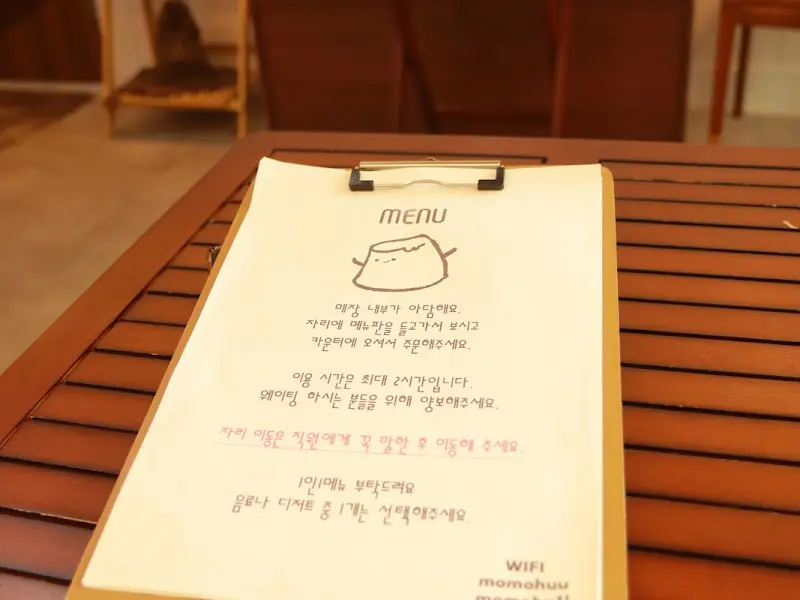 MENU
매장 내부가 아담해요.
자리에 메뉴판을 들고가서 보시고
카운터에 오셔서 주문해주세요.
이용 시간은 최대 2시간입니다.
웨이팅 하시는 분들을 위해 양보해주세요.
자리 이동은 직원에게 꼭 말한 후 이동해 주세요.
1인1메뉴 부탁드려요
음료나 디저트 중 1개는 선택해주세요.
WIFI
momohuu